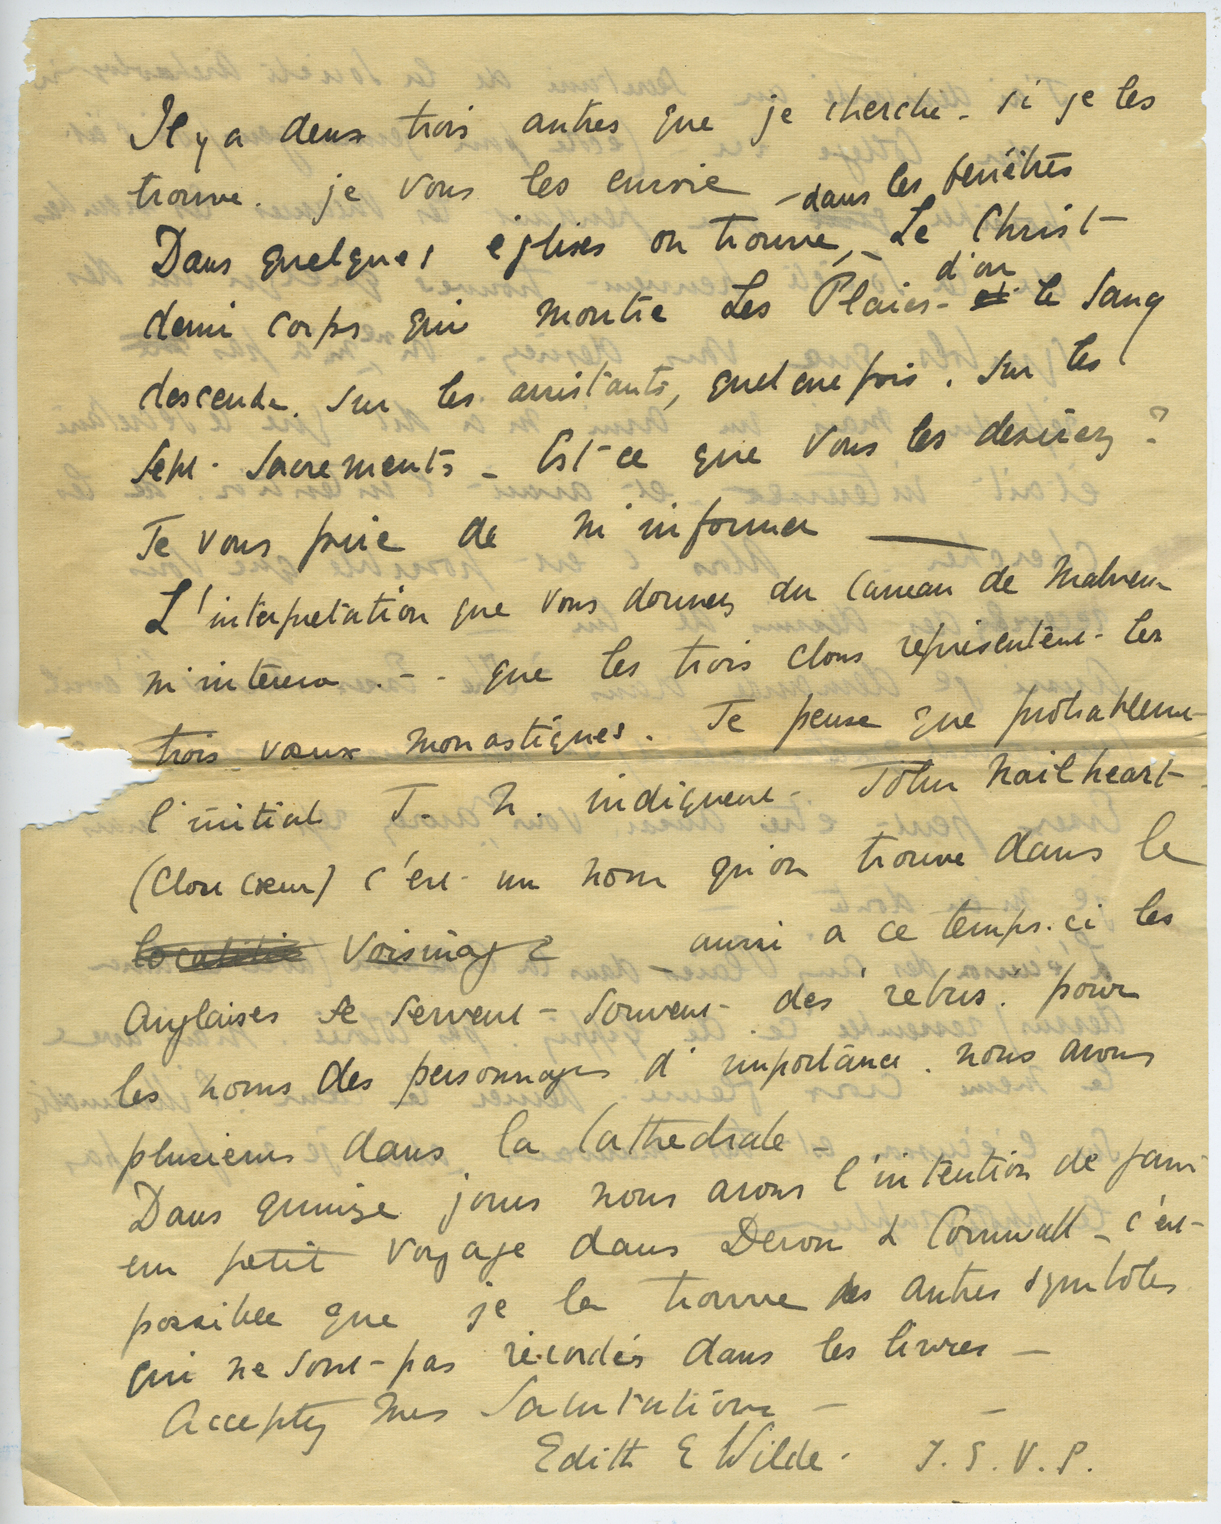 Il y a deux trois autres que je cherche - si je les
trouve. je vous les envoie
- dans les fenêtres
Dans quelques églises on trouve, - Le Christ
demi corps qui montre Les Plaies - d'ou le Sang
descende. Sur les assistants, quelquefois. Sur les
Sept Sacrements - Est-ce que vous les desirez ?
Je vous prie de m'informer —
L'interpretation que vous donnez du carreau de Malvern
m'interesse . - - que les trois clous représentent les
trois vœux monastiques. Je pense que probableme-
l'initial J. N. indiquent - John Nailheart -
(Clou cœur) c'est un nom qu'on trouve dans le
localitie voisinage - aussi a ce temps-ci les
Anglaises se servent - souvent - des rebus. pour
les noms des personnages d'importance. nous avons
plusieurs dans la Cathedrale -
Dans quinze jours nous avons l'intention de fair
un petit voyage dans Devon & Cornwall - c'est -
possible que je la trouve des autres symboles
qui ne sont-pas recordés dans les livres —
Acceptez mes Salutations — —
Edith E Wilde. T. S. V. P.